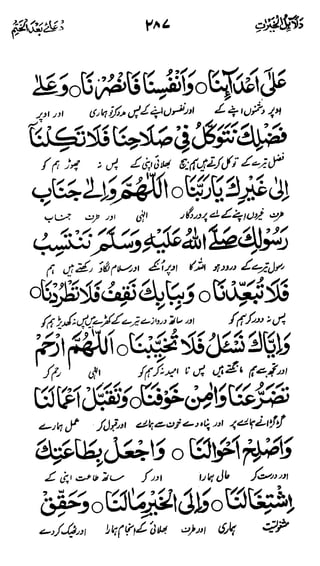 دلائل الخیرات ٢٨٧ دعائے بعد الختم
عَلٰى اَعْدَآئِنَا ○ وَاَنْفُسِنَا فَانْصُرْنَا ○ وَعَلٰى
اوپر دشمنوں اپنے کے اور نفسوں اپنے کے پس مدد کر تو ہماری اور اوپر
فَضْلِكَ نَتَوَكَّلُ فِيْ صَلَاحِنَا فَلَا تَكِلْنَا
فضل تیرے کے توکل کرتے ہیں ہم بیچ بھلائی اپنی کے پس نہ چھوڑ ہم کو
اِلٰى غَيْرِكَ يَا رَبَّنَا ○ اَللّٰهُمَّ وَاِلٰى جَنَابِ
طرف غیروں اپنے کے اے پروردگار الٰہی اور طرف جناب
رَسُوْلِكَ صَلَّى اللهُ عَلَيْهِ وَسَلَّمَ نَنْتَسِبُ
رسول تیرے کے درود ہو اللہ کا اوپر اُنکے اور سلام لگاؤ رکھتے ہیں ہم
فَلَا تُبَعِّدْنَا ○ وَبِبَابِكَ نَقِفُ فَلَا تَطْرُدْنَا ○
پس نہ دور کر ہم کو اور ساتھ دروازے تیرے کے کھڑے ہیں پس نہ کھدیڑ ہم کو
وَاِيَّاكَ نَسْئَلُ فَلَا تُخَيِّبْنَا ○ اَللّٰهُمَّ ارْحَمْ
اور تجھ سے ہم مانگتے ہیں پس نا امید نہ کر ہم کو الٰہی رحم کر
تَضَرُّعَنَا وَاٰمِنْ خَوْفَنَا ○ وَتَقَبَّلْ اَعْمَالَنَا
گڑگڑانے ہمارے پر اور پناہ دے خوف سے ہمارے اور قبول کر عمل ہمارے
وَاَصْلِحْ اَحْوَالَنَا ○ وَاجْعَلْ بِطَاعَتِكَ
اور درست کر حال ہمارا اور کر ساتھ طاعت اپنی کے
اِشْتِغَالَنَا ○ وَاِلَى الْخَيْرِ مَاٰلَنَا ○ وَحَقِّقْ
مشغولیت ہماری اور طرف بھلائی کے انجام ہمارا اور ٹھیک کر دے